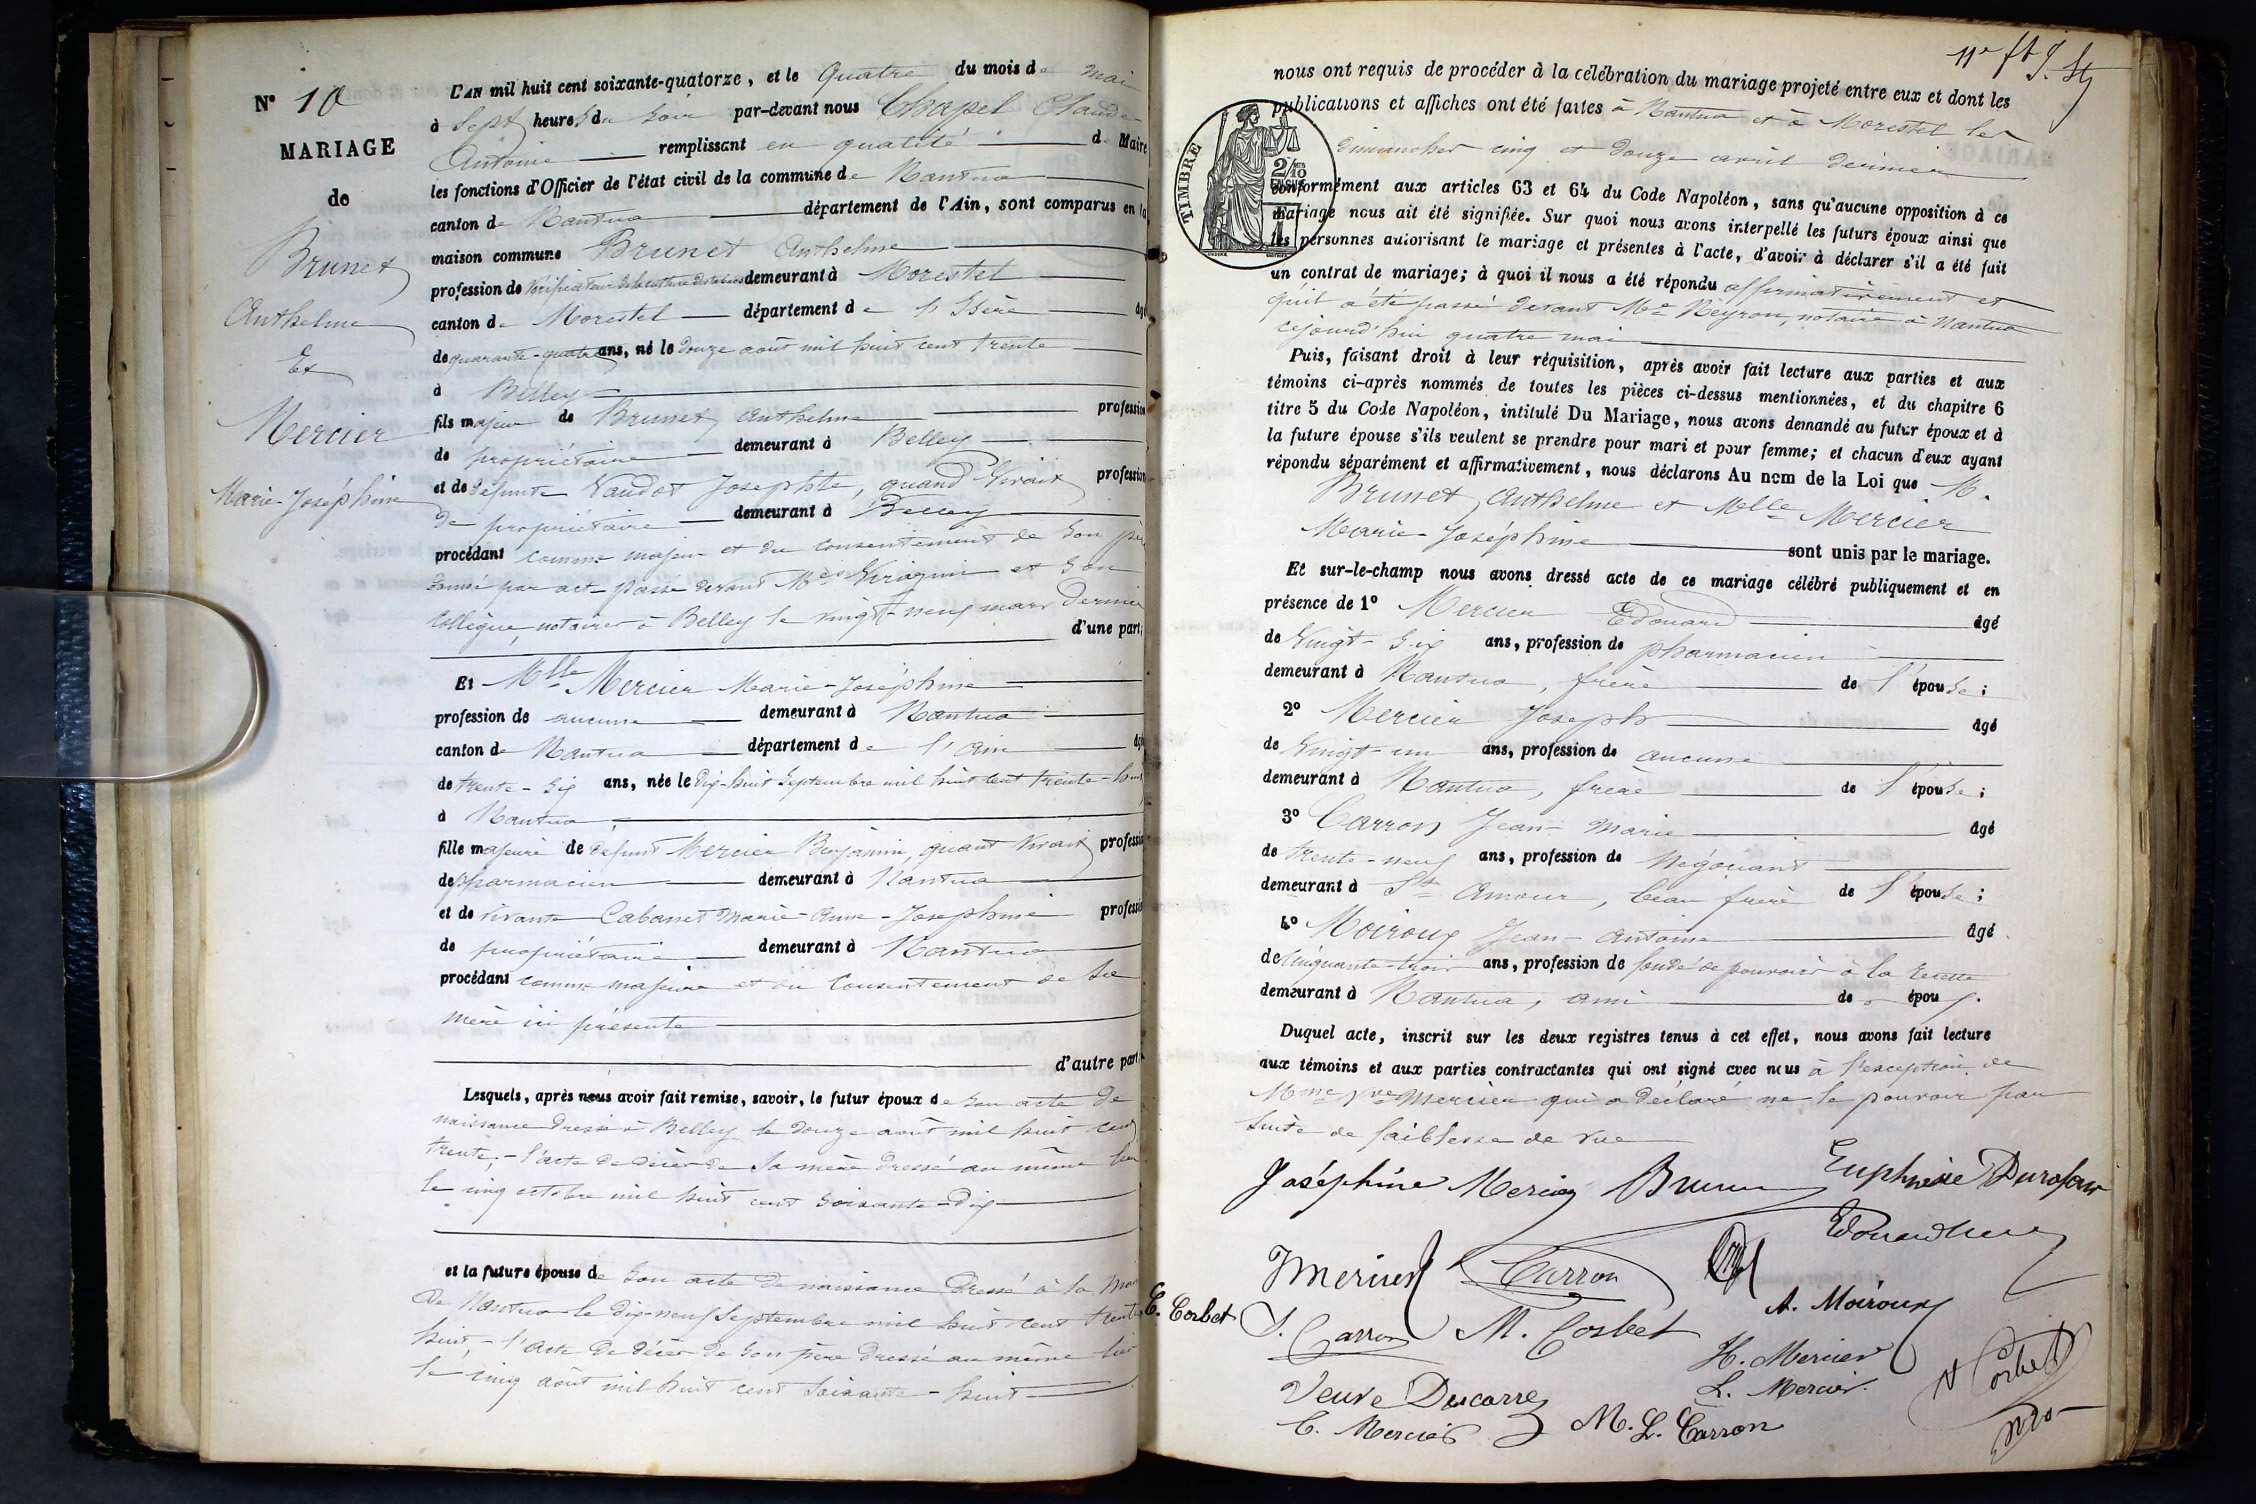 N° 10
MARIAGE
de
Brunet
Anthelme
Et
Mercier
Marie-Joséphine
L'AN mil huit cent soixante-quatorze, et le Quatre du mois de mai
à Sept heures du Soir par-devant nous Chapel Claude
Antoine remplissant en qualité de Maire
les fonctions d'Officier de l'état civil de la commune de Nantua
canton de Nantua département de l'Ain, sont comparus en la
maison commune Brunet Anthelme
profession de vérificateur demeurant à Morestel
canton de Morestel département de l'Isère âgé
de quarante-quatre ans, né le Douze août mil huit cent trente
à Belley
fils majeur de Brunet Anthelme profession
de propriétaire demeurant à Belley
et de défunte Vaudot Josephte, quand vivait profession
de propriétaire demeurant à Belley
procédant comme majeur et du consentement de son père
donné par acte passé devant Mes et son
Collègue, notaires à Belley le vingt-neuf mars Dernier
d'une part;
Et Mlle Mercier Marie-Joséphine
profession de aucune demeurant à Nantua
canton de Nantua département de l'Ain
de trente-six ans, née le Dix-huit Septembre mil huit cent trente-huit
à Nantua
fille majeure de défunt Mercier Benjamin, quant vivait profession
de pharmacien demeurant à Nantua
et de vivante Cabanet Marie-Anne-Josephine profession
de propriétaire demeurant à Nantua
procédant comme majeure et du Consentement de sa
mère ici présente
d'autre part,
Lesquels, après nous avoir fait remise, savoir, le futur époux de Son acte de
naissance Dressé à Belley le douze août mil huit cent
trente; - l'acte de décès de sa mère dressé au même lieu
le cinq octobre mil huit cent soixante-Dix
et la future épouse de Son acte de naissance Dressé à la
de Nantua le dix-neuf Septembre mil huit cent trente
huit, - l'acte de décès de son père dressé au même lieu
le cinq août mil huit cent Soixante-huit
11e ft
nous ont requis de procéder à la célébration du mariage projeté entre eux et dont les
publications et affiches ont été faites à Nantua et à Morestel les
dimanches cinq et douze avril dernier
TIMBRE
2/10
EN SUS
conformément aux articles 63 et 64 du Code Napoléon, sans qu'aucune opposition à ce
mariage nous ait été signifiée. Sur quoi nous avons interpellé les futurs époux ainsi que
les personnes autorisant le mariage et présentes à l'acte, d'avoir à déclarer s'il a été fait
un contrat de mariage; à quoi il nous a été répondu affirmativement et
qu'il a été passé devant Me Neyron, notaire à Nantua
cejourd'hui quatre mai
Puis, faisant droit à leur réquisition, après avoir fait lecture aux parties et aux
témoins ci-après nommés de toutes les pièces ci-dessus mentionnées, et du chapitre 6
titre 5 du Code Napoléon, intitulé Du Mariage, nous avons demandé au futur époux et à
la future épouse s'ils veulent se prendre pour mari et pour femme; et chacun d'eux ayant
répondu séparément et affirmativement, nous déclarons Au nom de la Loi que M.
Brunet Anthelme et Melle Mercier
Marie-Joséphine sont unis par le mariage.
Et sur-le-champ nous avons dressé acte de ce mariage célébré publiquement et en
présence de 1° Mercier Edouard âgé
de Vingt-Six ans, profession de pharmacien
demeurant à Nantua, frère de l'épouse;
2° Mercier Joseph âgé
de Vingt-un ans, profession de aucune
demeurant à Nantua, frère de l'épouse;
3° Carron Jean-Marie âgé
de trente-neuf ans, profession de Négociant
demeurant à St Amour, beau frère de l'épouse;
4° Moiroux Jean-Antoine âgé
de Cinquante-trois ans, profession de fondé de pouvoirs à la recette
demeurant à Nantua, ami de épou
Duquel acte, inscrit sur les deux registres tenus à cet effet, nous avons fait lecture
aux témoins et aux parties contractantes qui ont signé avec nous à l'exception de
Mme Vve Mercier qui a déclaré ne le pouvoir par
suite de faiblesse de vue
Joséphine Mercier Brunet
Edouard Mercier
J Mercier Carron
A. Moiroux
C. Corbet J. Carron M. Corbet
H. Mercier
L. Mercier
N Corbet
Veuve Ducarre
C. Mercier M. L. Carron